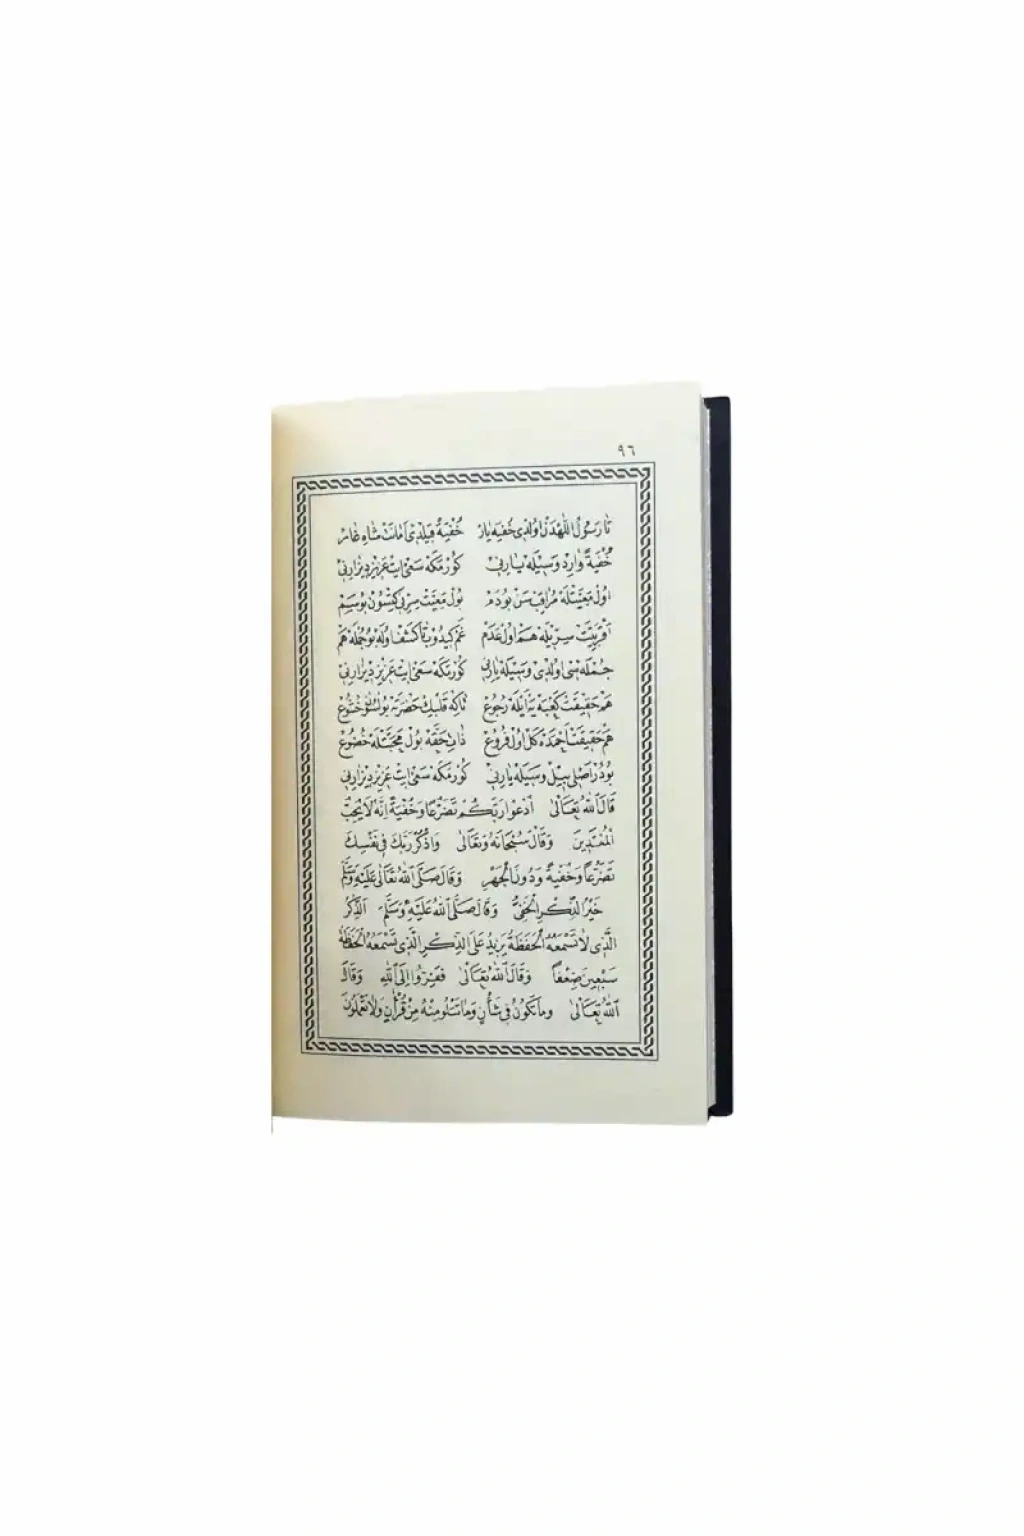 ٩٦
تا رسول اللهدن اولدی خفیه یار خفیه قیلدی امانت شاه غار
خفیهٔ وارد وسیله یارینی کورمکه سعی ایت عزیز دیزارینی
اول معیتله مراقب سن بودم بول معیت سرینی کتسون بو سیم
اقربیت سریله هم اول عدم غم کیدوب تا کشف اوله بو جمله هم
جمله سی اولدی وسیله یارینی کورمکه سعی ایت عزیز دیزارینی
هم حقیقت کعبه یه ایله رجوع تا که قلبك حضرته بولسون خشوع
هم حقیقت احمده کل اول فروع ذات حقه بول محبتله خضوع
بودر اصلی بیل وسیله یارینی کورمکه سعی ایت عزیز دیزارینی
قَالَ اللهُ تَعَالٰى اُدْعُوا رَبَّكُمْ تَضَرُّعًا وَخُفْيَةً اِنَّهُ لَا يُحِبُّ
الْمُعْتَدِينَ وَقَالَ سُبْحَانَهُ وَتَعَالٰى وَاذْكُرْ رَبَّكَ فِي نَفْسِكَ
تَضَرُّعًا وَخُفْيَةً وَدُونَ الْجَهْرِ وَقَالَ صَلَّى اللهُ تَعَالٰى عَلَيْهِ وَسَلَّمَ
خَيْرُ الذِّكْرِ الْخَفِيُّ وَقَالَ صَلَّى اللهُ عَلَيْهِ وَسَلَّمَ اَلذِّكْرُ
الَّذِي لَا تَسْمَعُهُ الْحَفَظَةُ يَزِيدُ عَلَى الذِّكْرِ الَّذِي تَسْمَعُهُ الْحَفَظَةُ
سَبْعِينَ ضِعْفًا وَقَالَ اللهُ تَعَالٰى فَفِرُّوا اِلَى اللهِ وَقَالَ
اللهُ تَعَالٰى وَمَا تَكُونُ فِي شَأْنٍ وَمَا تَتْلُو مِنْهُ مِنْ قُرْاٰنٍ وَلَا تَعْمَلُونَ